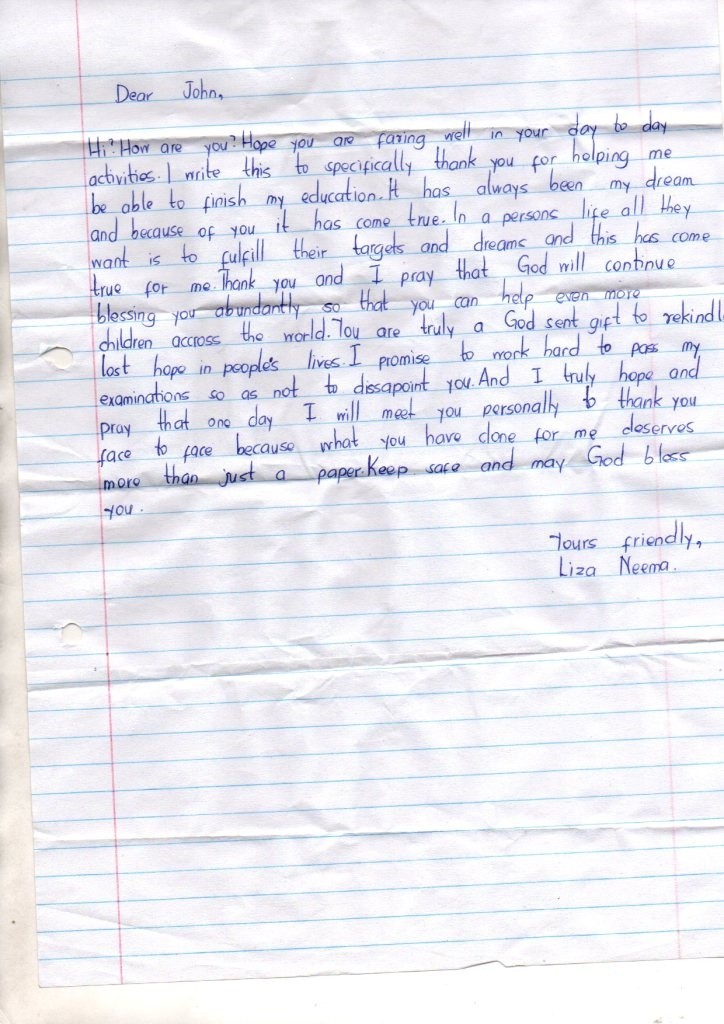 Dear John,
Hi? How are you? Hope you are faring well in your day to day
activities. I write this to specifically thank you for helping me
be able to finish my education. It has always been my dream
and because of you it has come true. In a persons life all they
want is to fulfill their targets and dreams and this has come
true for me. Thank you and I pray that God will continue
blessing you abundantly so that you can help even more
children accross the world. You are truly a God sent gift to rekindl
lost hope in people's lives. I promise to work hard to pass my
examinations so as not to dissapoint you. And I truly hope and
pray that one day I will meet you personally to thank you
face to face because what you have done for me deserves
more than just a paper. Keep safe and may God bless
you.
Yours friendly,
Liza Neema.